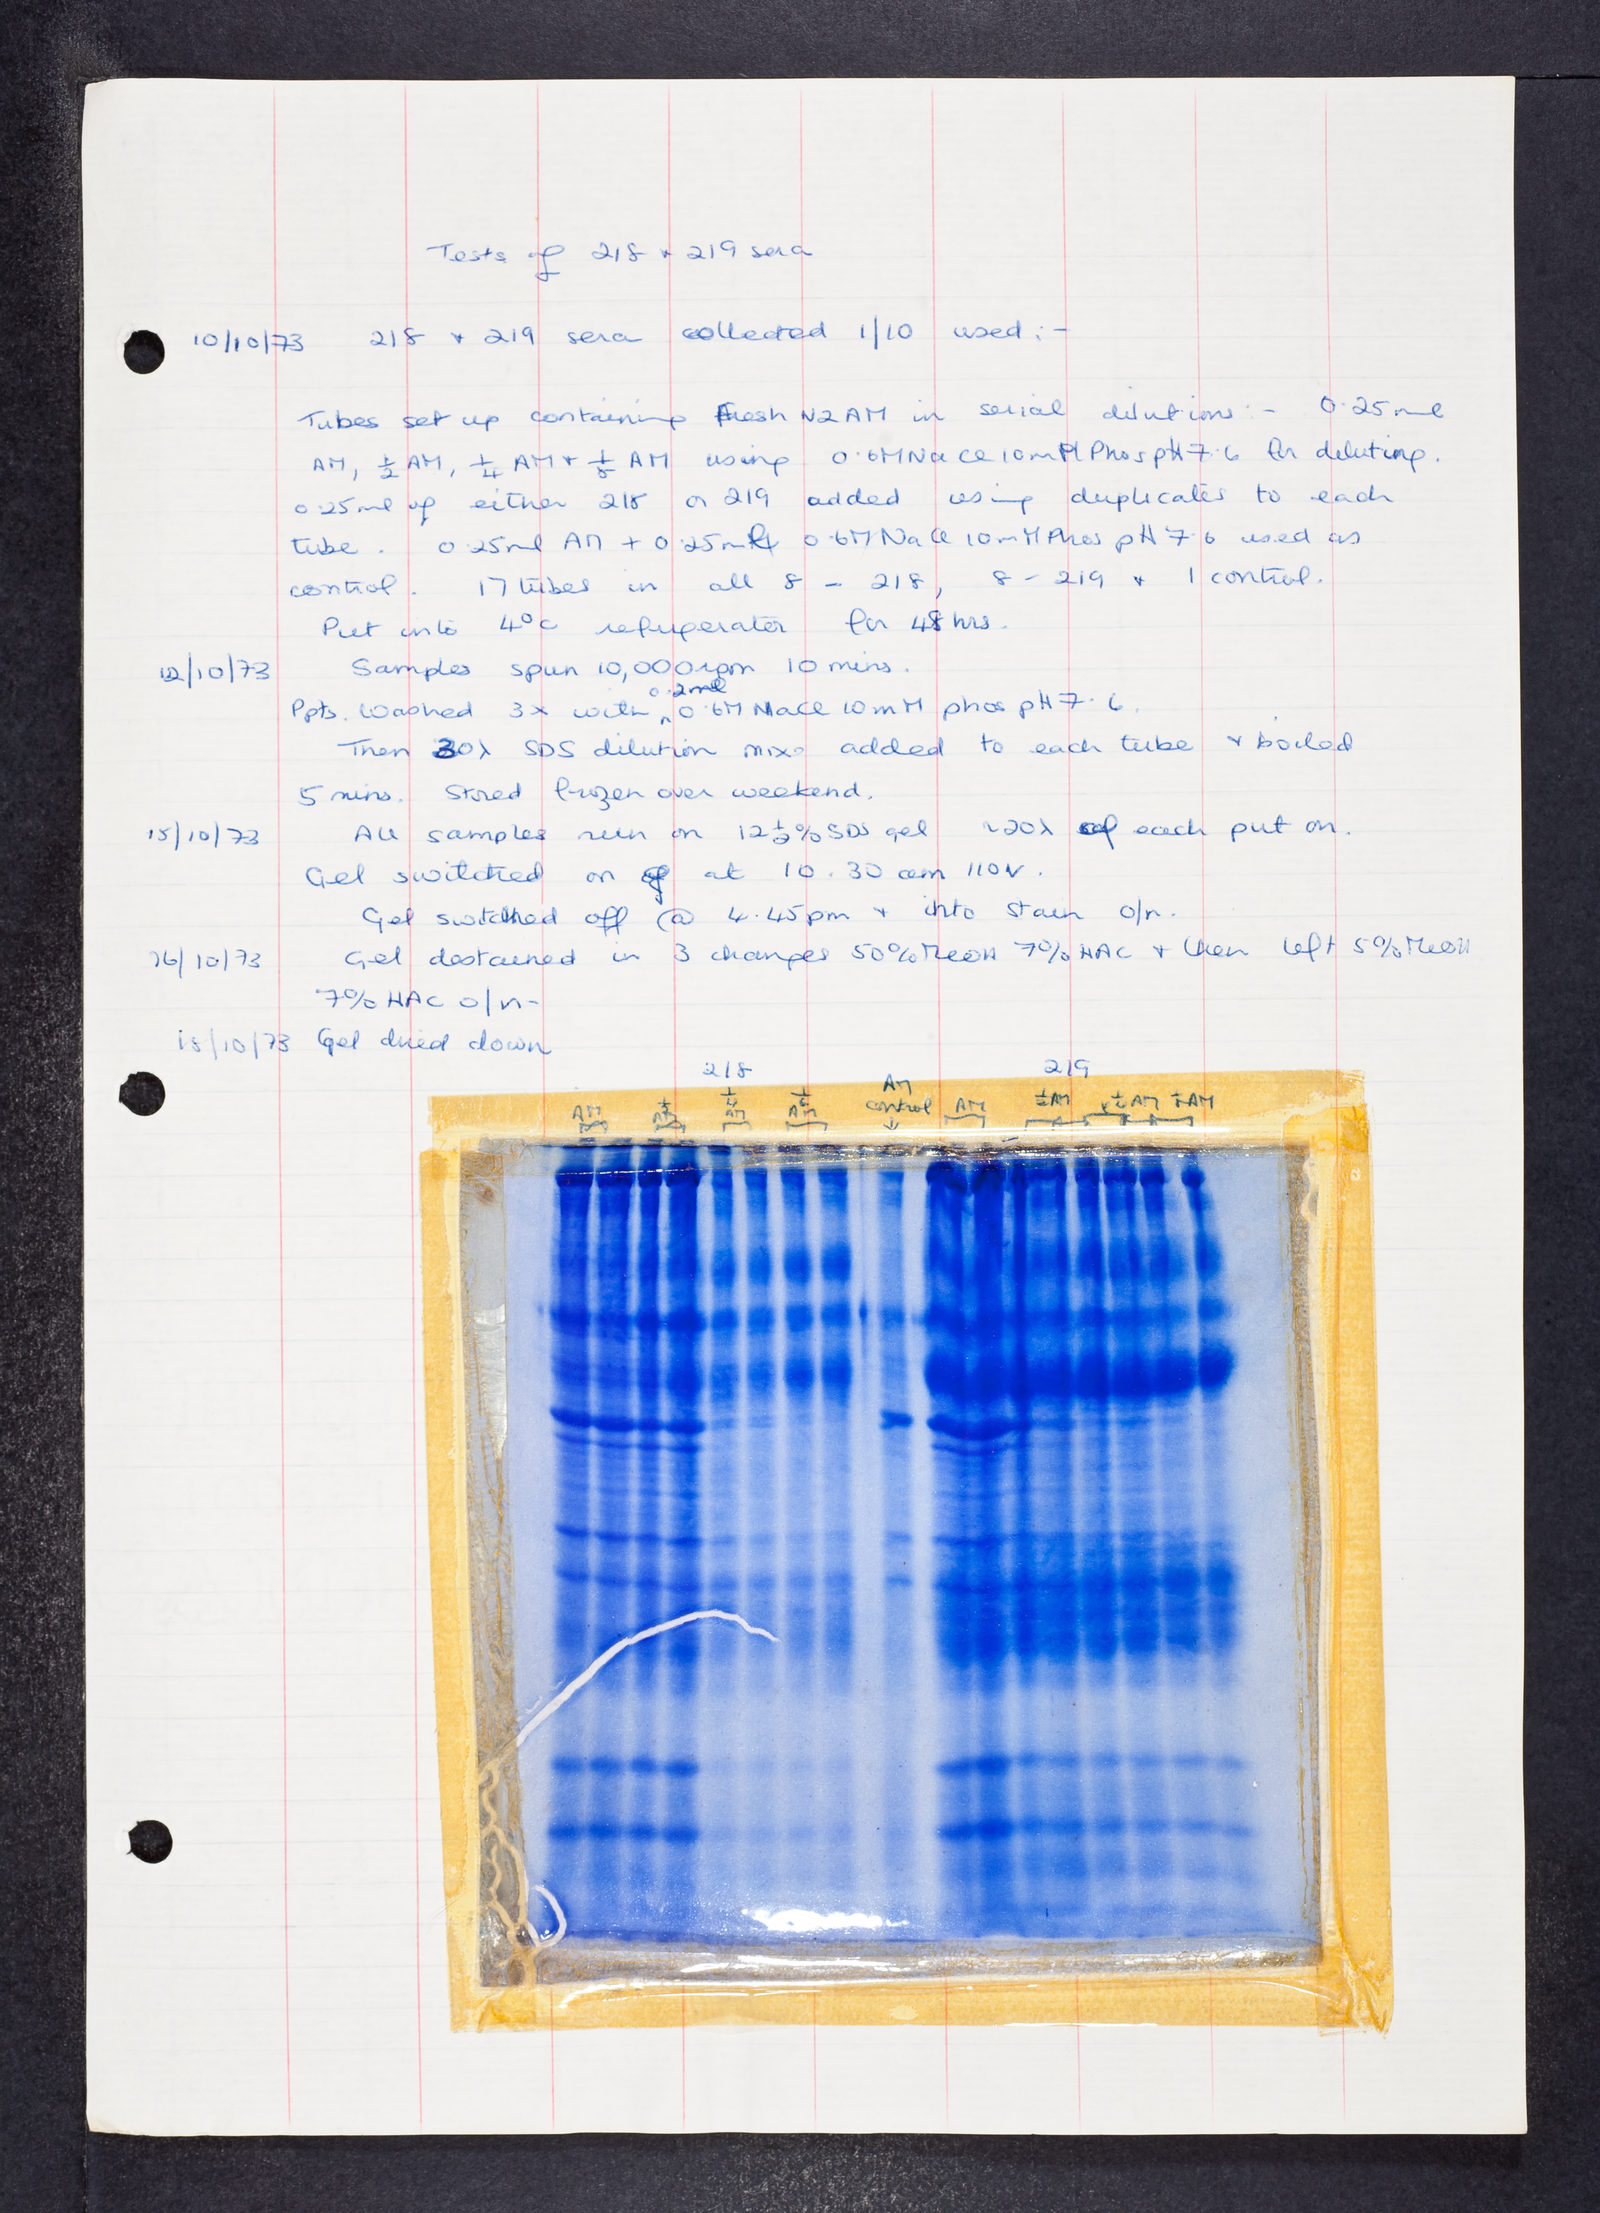 Tests of 218 + 219 sera
10/10/73 218 + 219 sera collected 1/10 used :-
Tubes set up containing Fresh N2 AM in serial dilutions :- 0.25ml
AM, ½ AM, ¼ AM + ⅛ AM using 0.6M NaCl 10mM Phos pH 7.6 for diluting.
0.25ml of either 218 or 219 added using duplicates to each
tube. 0.25ml AM + 0.25ml 0.6M NaCl 10mM Phos pH 7.6 used as
control. 17 tubes in all 8 - 218, 8 - 219 + 1 control.
Put into 4°C refrigerator for 48 hrs.
12/10/73 Samples spun 10,000rpm 10 mins.
Ppts. Washed 3x with 0.2ml 0.6M NaCl 10mM phos pH 7.6.
Then 30λ SDS dilution mix added to each tube + boiled
5 mins. Stored frozen over weekend.
15/10/73 All samples run on 12½% SDS gel ~20λ of each put on.
Gel switched on at 10.30 am 110V.
Gel switched off @ 4.45pm + into stain o/n.
16/10/73 Gel destained in 3 changes 50% MeOH 7% HAC + then left 5% MeOH
7% HAC o/n-
18/10/73 Gel dried down
218 219
AM ½ AM ¼ AM ⅛ AM AM control AM ½ AM ¼ AM ⅛ AM